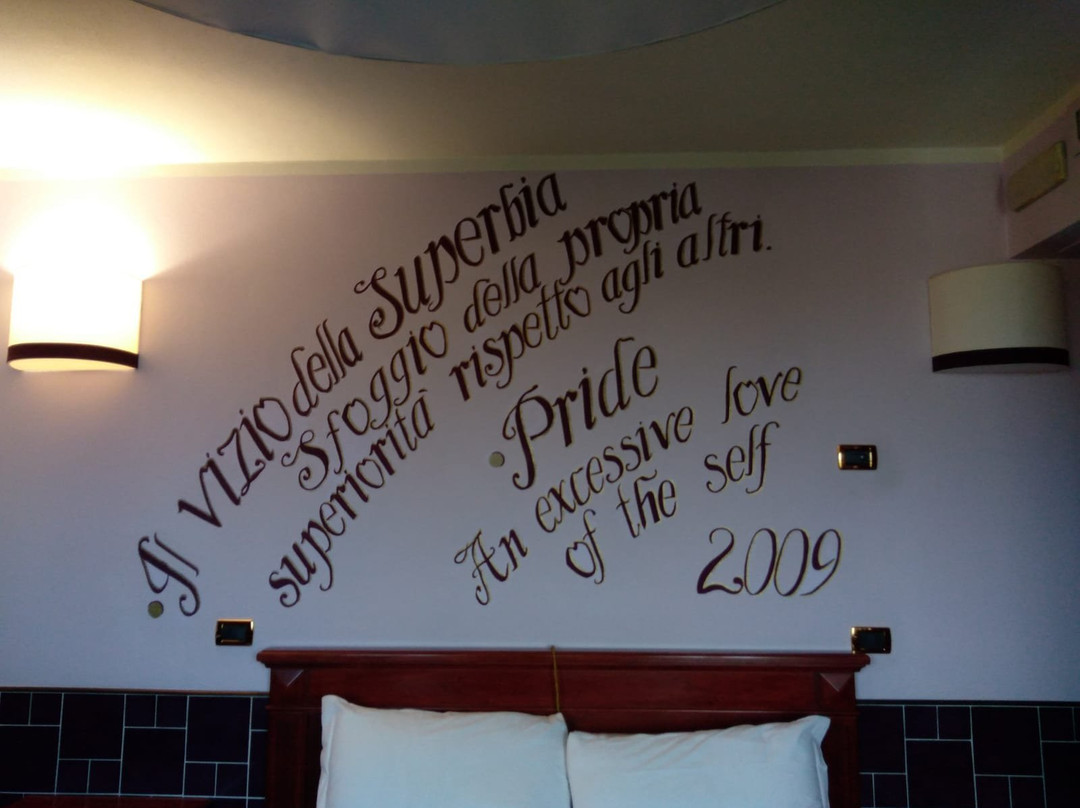 Il vizio della Superbia
Sfoggio della propria
superiorità rispetto agli altri.
Pride
An excessive love
of the self
2009